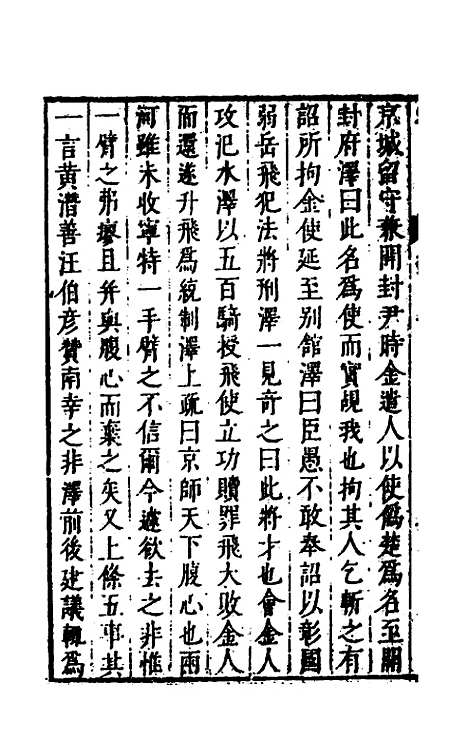 京城留守兼開封尹時金遣人以使僞楚爲名至開
封府澤曰此名爲使而實覘我也拘其人乞斬之有
詔所拘金使延至别館澤曰臣愚不敢奉詔以彰國
弱岳飛犯法將刑澤一見竒之曰此將才也會金人
攻汜水澤以五百騎授飛使立功贖罪飛大敗金人
而還遂升飛爲統制澤上疏曰京師天下腹心也兩
河雖未收寧特一手臂之不信爾今遽欲去之非惟
一臂之弗瘳且并與腹心而棄之矣又上條五事其
一言黄潛善汪伯彦贊南幸之非澤前後建議輒爲